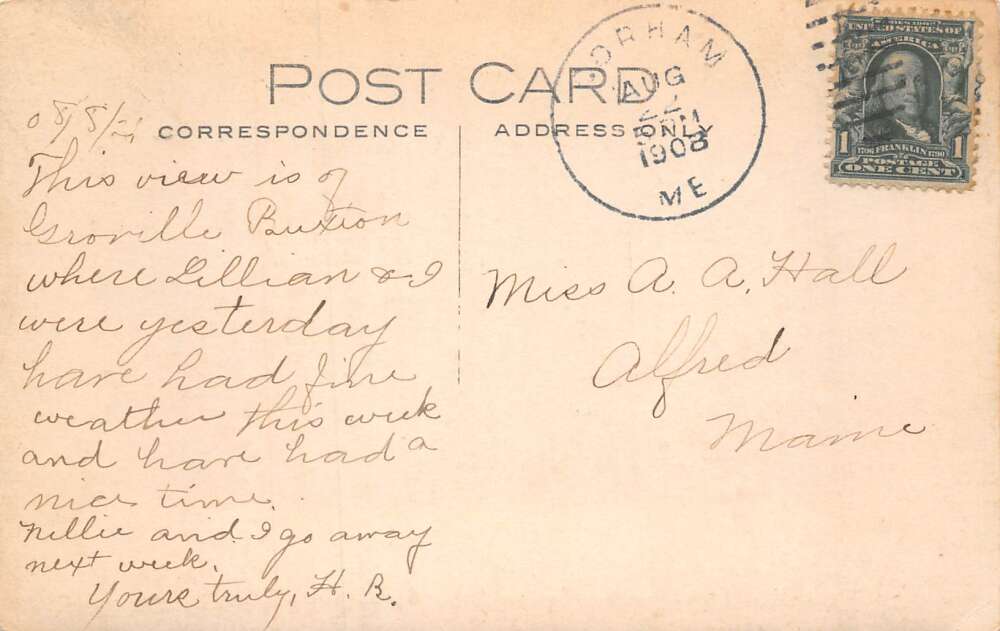 POST CARD
CORRESPONDENCE
ADDRESS ONLY
GORHAM
AUG
22
5 PM
1908
ME
UNITED STATES OF
AMERICA
1 1
1706 FRANKLIN 1790
POSTAGE
ONE CENT
08/8/21
This view is of
Groville Buxton
where Lillian & I
were yesterday
have had fine
weather this week
and have had a
nice time.
Nellie and I go away
next week.
Yours truly, H. B.
Miss A. A. Hall
Alfred
Maine